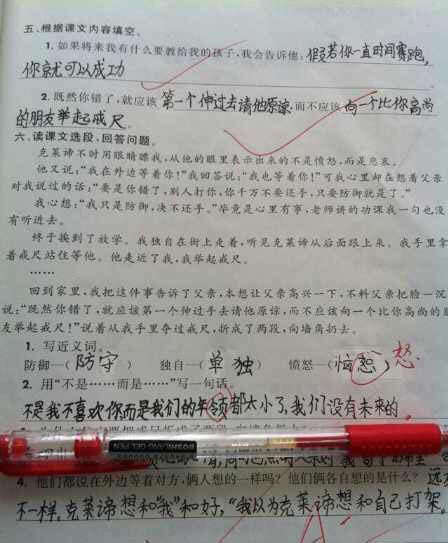 五、根据课文内容填空。
1. 如果将来我有什么要教给我的孩子，我会告诉他：但若你一直时间赛跑，
你就可以成功
2. 既然你错了，就应该第一个伸过去请他原谅而不应该向一个比你高尚
的朋友举起戒尺。
六、读课文选段，回答问题。
克莱谛不时用眼睛瞟我，从他的眼里表示出来的不是愤怒，而是悲哀。
他又说：“我在外边等着你！”我回答说：“我也等着你！”可我心里却在想着父亲
对我说过的话：“要是你错了，别人打你，你千万不要还手，只要防御就是了。”
我心想：“我只是防御，决不还手。”毕竟是心里有事，老师讲的功课我一句也没
有听进去。
终于挨到了放学。我独自在街上走着，听见克莱谛从后面跟上来。我手里拿
着戒尺站住等他。他走近了我，我举起戒尺。
……
回到家里，我把这件事告诉了父亲，本想让父亲高兴一下，不料父亲把脸一沉
说：“既然你错了，就应该第一个伸过手去请他原谅，而不应该向一个比你高尚的朋
友举起戒尺！”说着从我手里夺过戒尺，折成了两段，向墙角扔去。
1. 写近义词。
防御—（防守） 独自—（单独） 愤怒—（恼怨） 怒
2. 用“不是……而是……”写一句话。
不是我不喜欢你而是我们的年领都太小了，我们没有未来的。
4. 他们都说在外边等着对方，俩人想的一样吗？他们俩各自想的是什么？
不一样。克莱谛想和“我”和好，“我以为克莱谛想和自己打架。